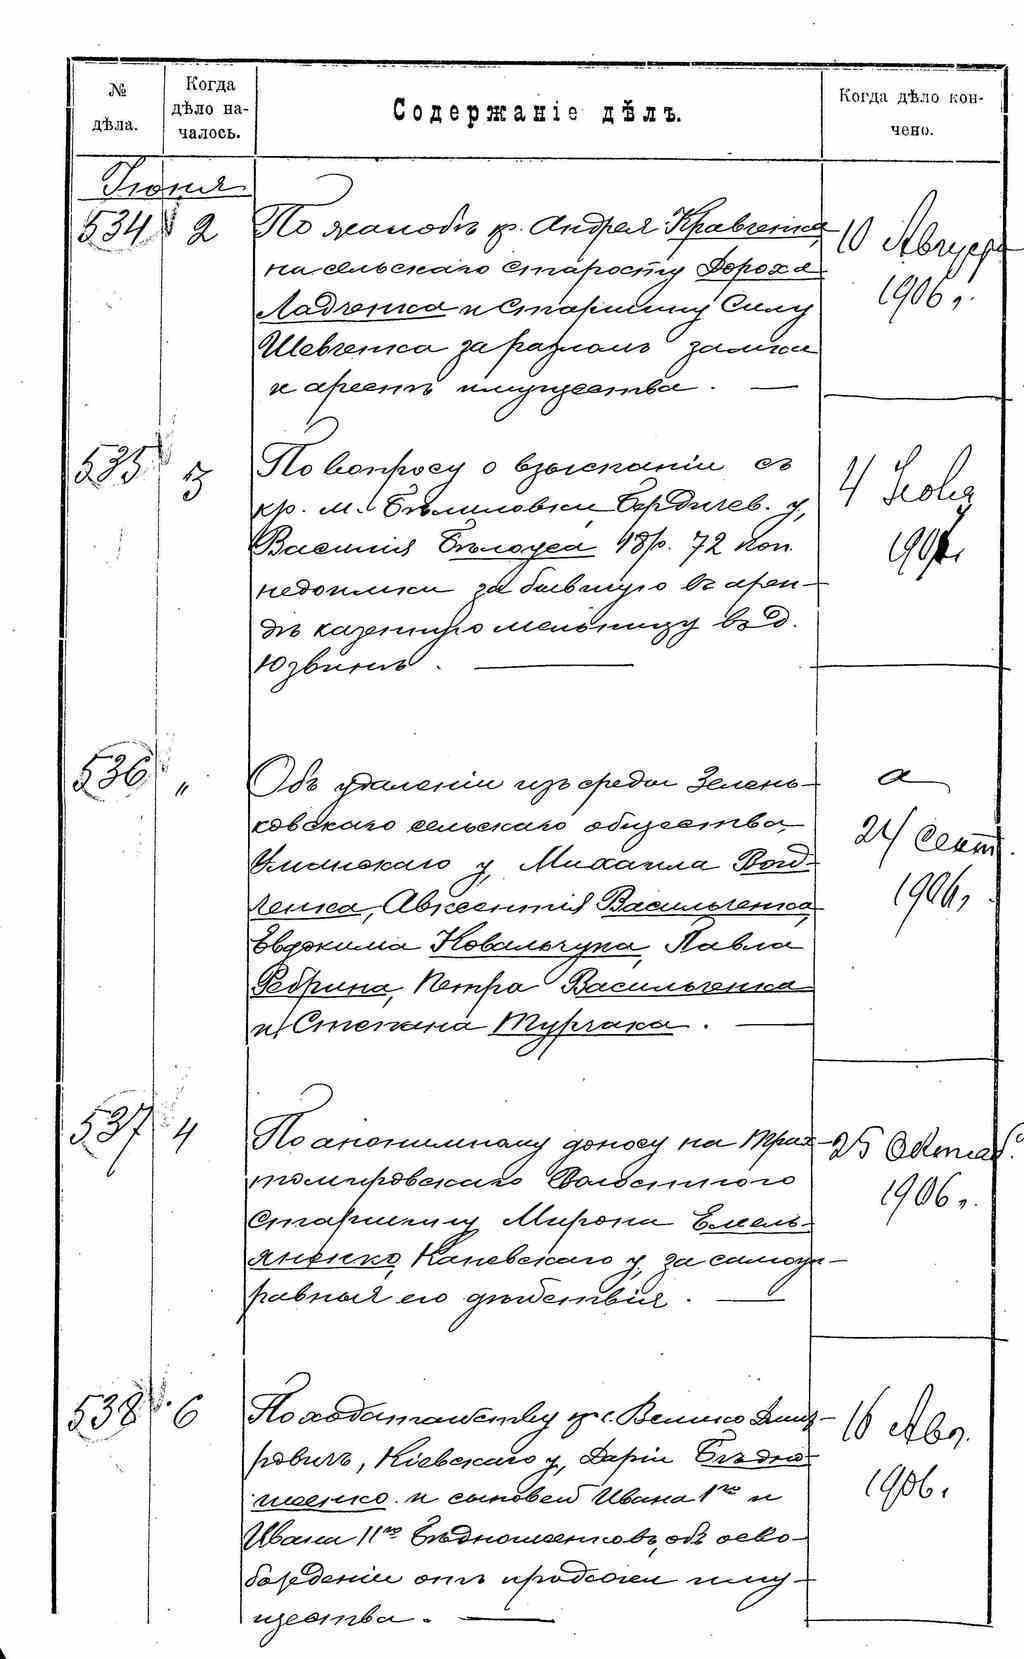 № дѣла.
Когда дѣло на-чалось.
Содержаніе дѣлъ.
Когда дѣло кон-чено.
Іюня
534 2 По жалобѣ кр. Андрея Кравченка, 10 Августа
на сельскаго старосту Дороха 1906 г.
Ладченка и Старшину Силу
Шевченка за разломъ замка
и арестъ имущества. —
535 3 По вопросу о взысканіи съ 4 Іюня
кр. м. Бѣлиловки, Бердичев. у, 190 г.
Василія Бѣлоуса 18 р. 72 коп.
недоимки за бывшую въ арен-
дѣ казенную мельницу въ д.
Юзвинѣ. —
536 „ Объ удаленіи изъ среды Зелень- а
ковскаго сельскаго общества, 24 Сент.
Уманскаго у, Михаила 1906 г.
ченка, Авксентія Васильченка,
Евдокима Ковальчука, Павла
Ребрина, Петра Васильченка
и Степана Турчака. —
537 4 По анонимному доносу на Трах- 25 Октяб.
томировскаго Волостного 1906 г.
Старшину Мирона Емель-
яненко, Каневскаго у, за самоуп-
равныя его дѣйствія. —
538 6 По ходатайству кр. с. Велико Дмит- 16 Авг.
ровичъ, Кіевскаго у, Даріи Бѣдно- 1906 г.
шенко и сыновей Ивана 1го и
Ивана 11го Бѣдношенковъ, объ осво-
божденіи отъ продажи иму-
щества. —